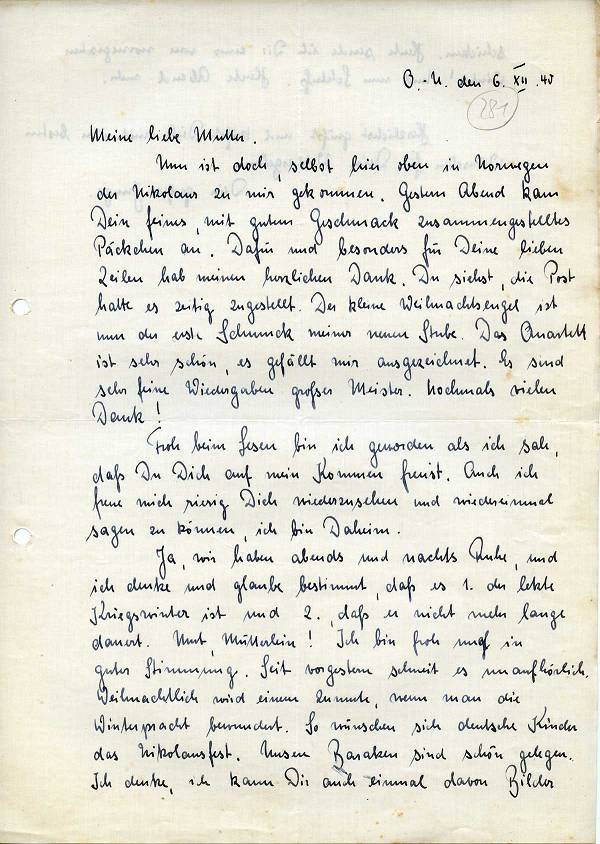 O.-U. den 6. XII. 40
281
Meine liebe Mutter.
Nun ist doch, selbst hier oben in Norwegen
der Nikolaus zu mir gekommen. Gestern Abend kam
Dein feines, mit gutem Geschmack zusammengestelltes
Päckchen an. Dafür und besonders für Deine lieben
Zeilen hab meinen herzlichen Dank. Du siehst, die Post
hatte es zeitig zugestellt. Der kleine Weihnachtsengel ist
nun der erste Schmuck meiner neuen Stube. Das Quartett
ist sehr schön, es gefällt mir ausgezeichnet. Es sind
sehr feine Wiedergaben großer Meister. Nochmals vielen
Dank!
Froh beim Lesen bin ich geworden als ich sah,
daß Du Dich auf mein Kommen freust. Auch ich
freue mich riesig Dich wiederzusehen und wiedereinmal
sagen zu können, ich bin Daheim.
Ja, wir haben abends und nachts Ruhe, und
ich denke und glaube bestimmt, daß es 1. der letzte
Kriegswinter ist und 2., daß er nicht mehr lange
dauert. Mut, Mütterlein! Ich bin froh und in
guter Stimmung. Seit vorgestern schneit es unaufhörlich.
Weihnachtlich wird einem zumute, wenn man die
Winterpracht bewundert. So wünschen sich deutsche Kinder
das Nikolausfest. Unsere Baraken sind schön gelegen.
Ich denke, ich kann Dir auch einmal davon Bilder